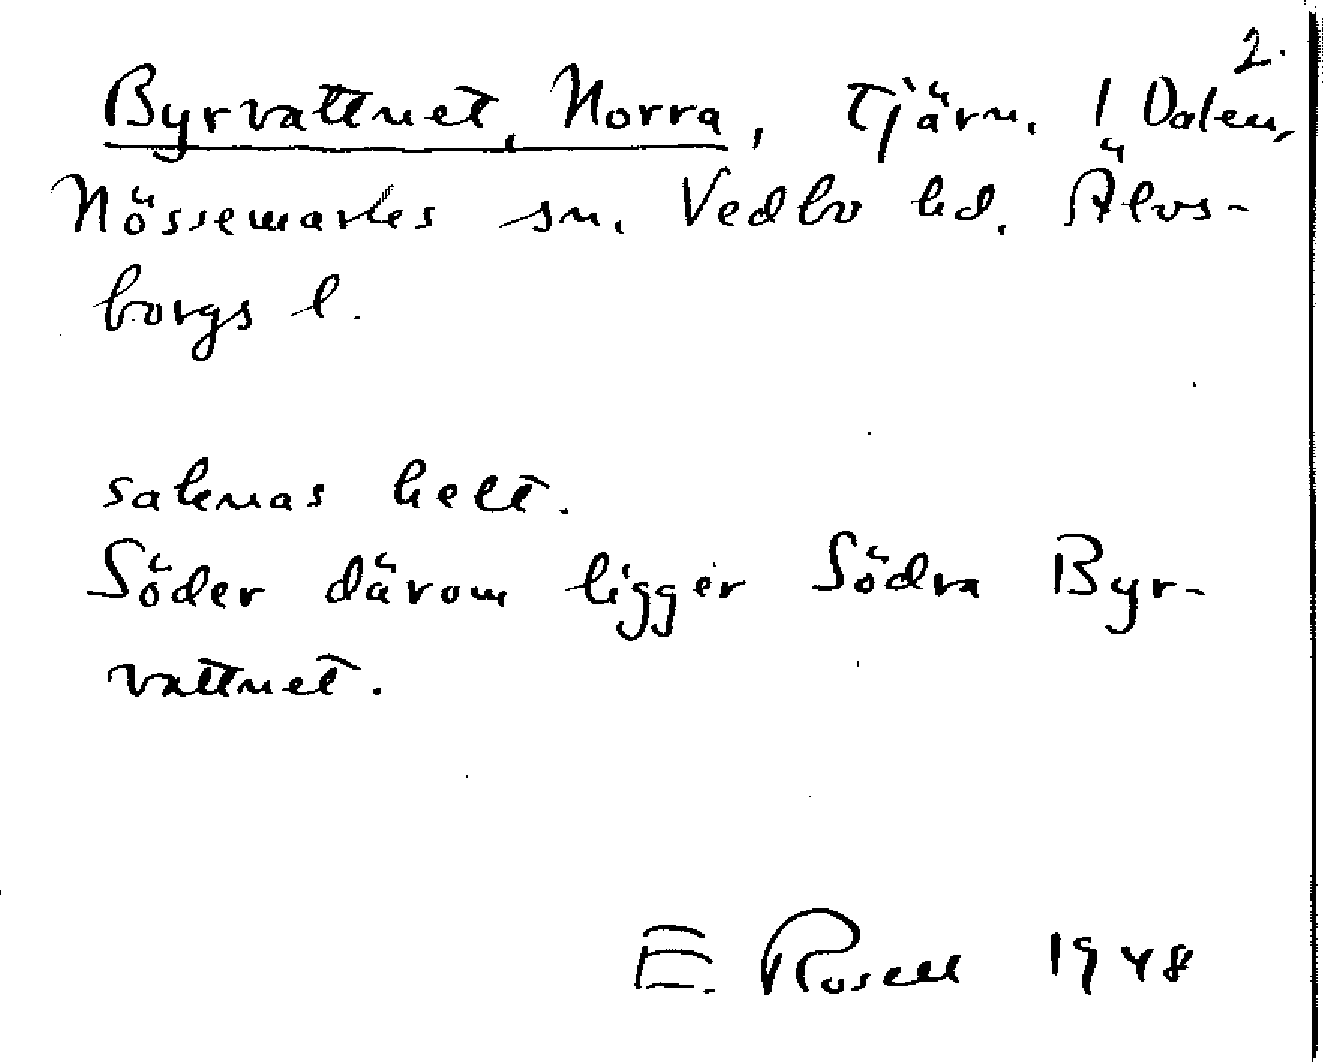 2.
Byrvattnet, Norra, Tjärn. 1 Dalen,
Nössemarks sn. Vedbo hd. Älvs-
borgs l.
saknas helt.
Söder därom ligger Södra Byr-
vattnet.
E. Rosell 1948